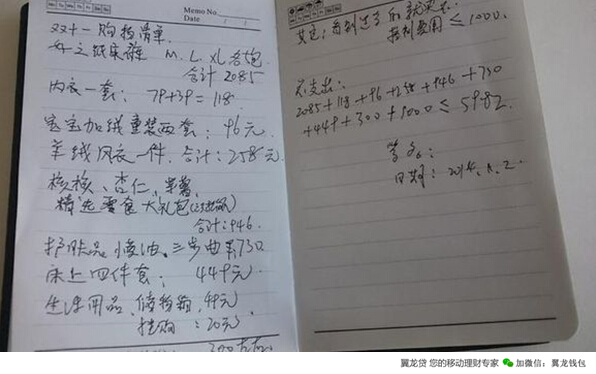 Memo No.
Date / /
双十一购物清单
M. L. XL各
合计 2085
内衣一套: 79+39=118
宝宝加绒童装两套: 96元
羊绒风衣一件, 合计: 258元
核桃、杏仁、
精选零食大礼包
合计: 946
护肤品、
730
床上四件套: 449元
生活用品、储物箱, 49元
: 20元
300左右
其它: 看到过了的就买不
费用 ≤ 1000.
总支出:
2085+118+96+258+946+730
+449+300+1000 ≤ 5982
签名:
日期: 2014.
翼龙贷 您的移动理财专家 加微信: 翼龙钱包